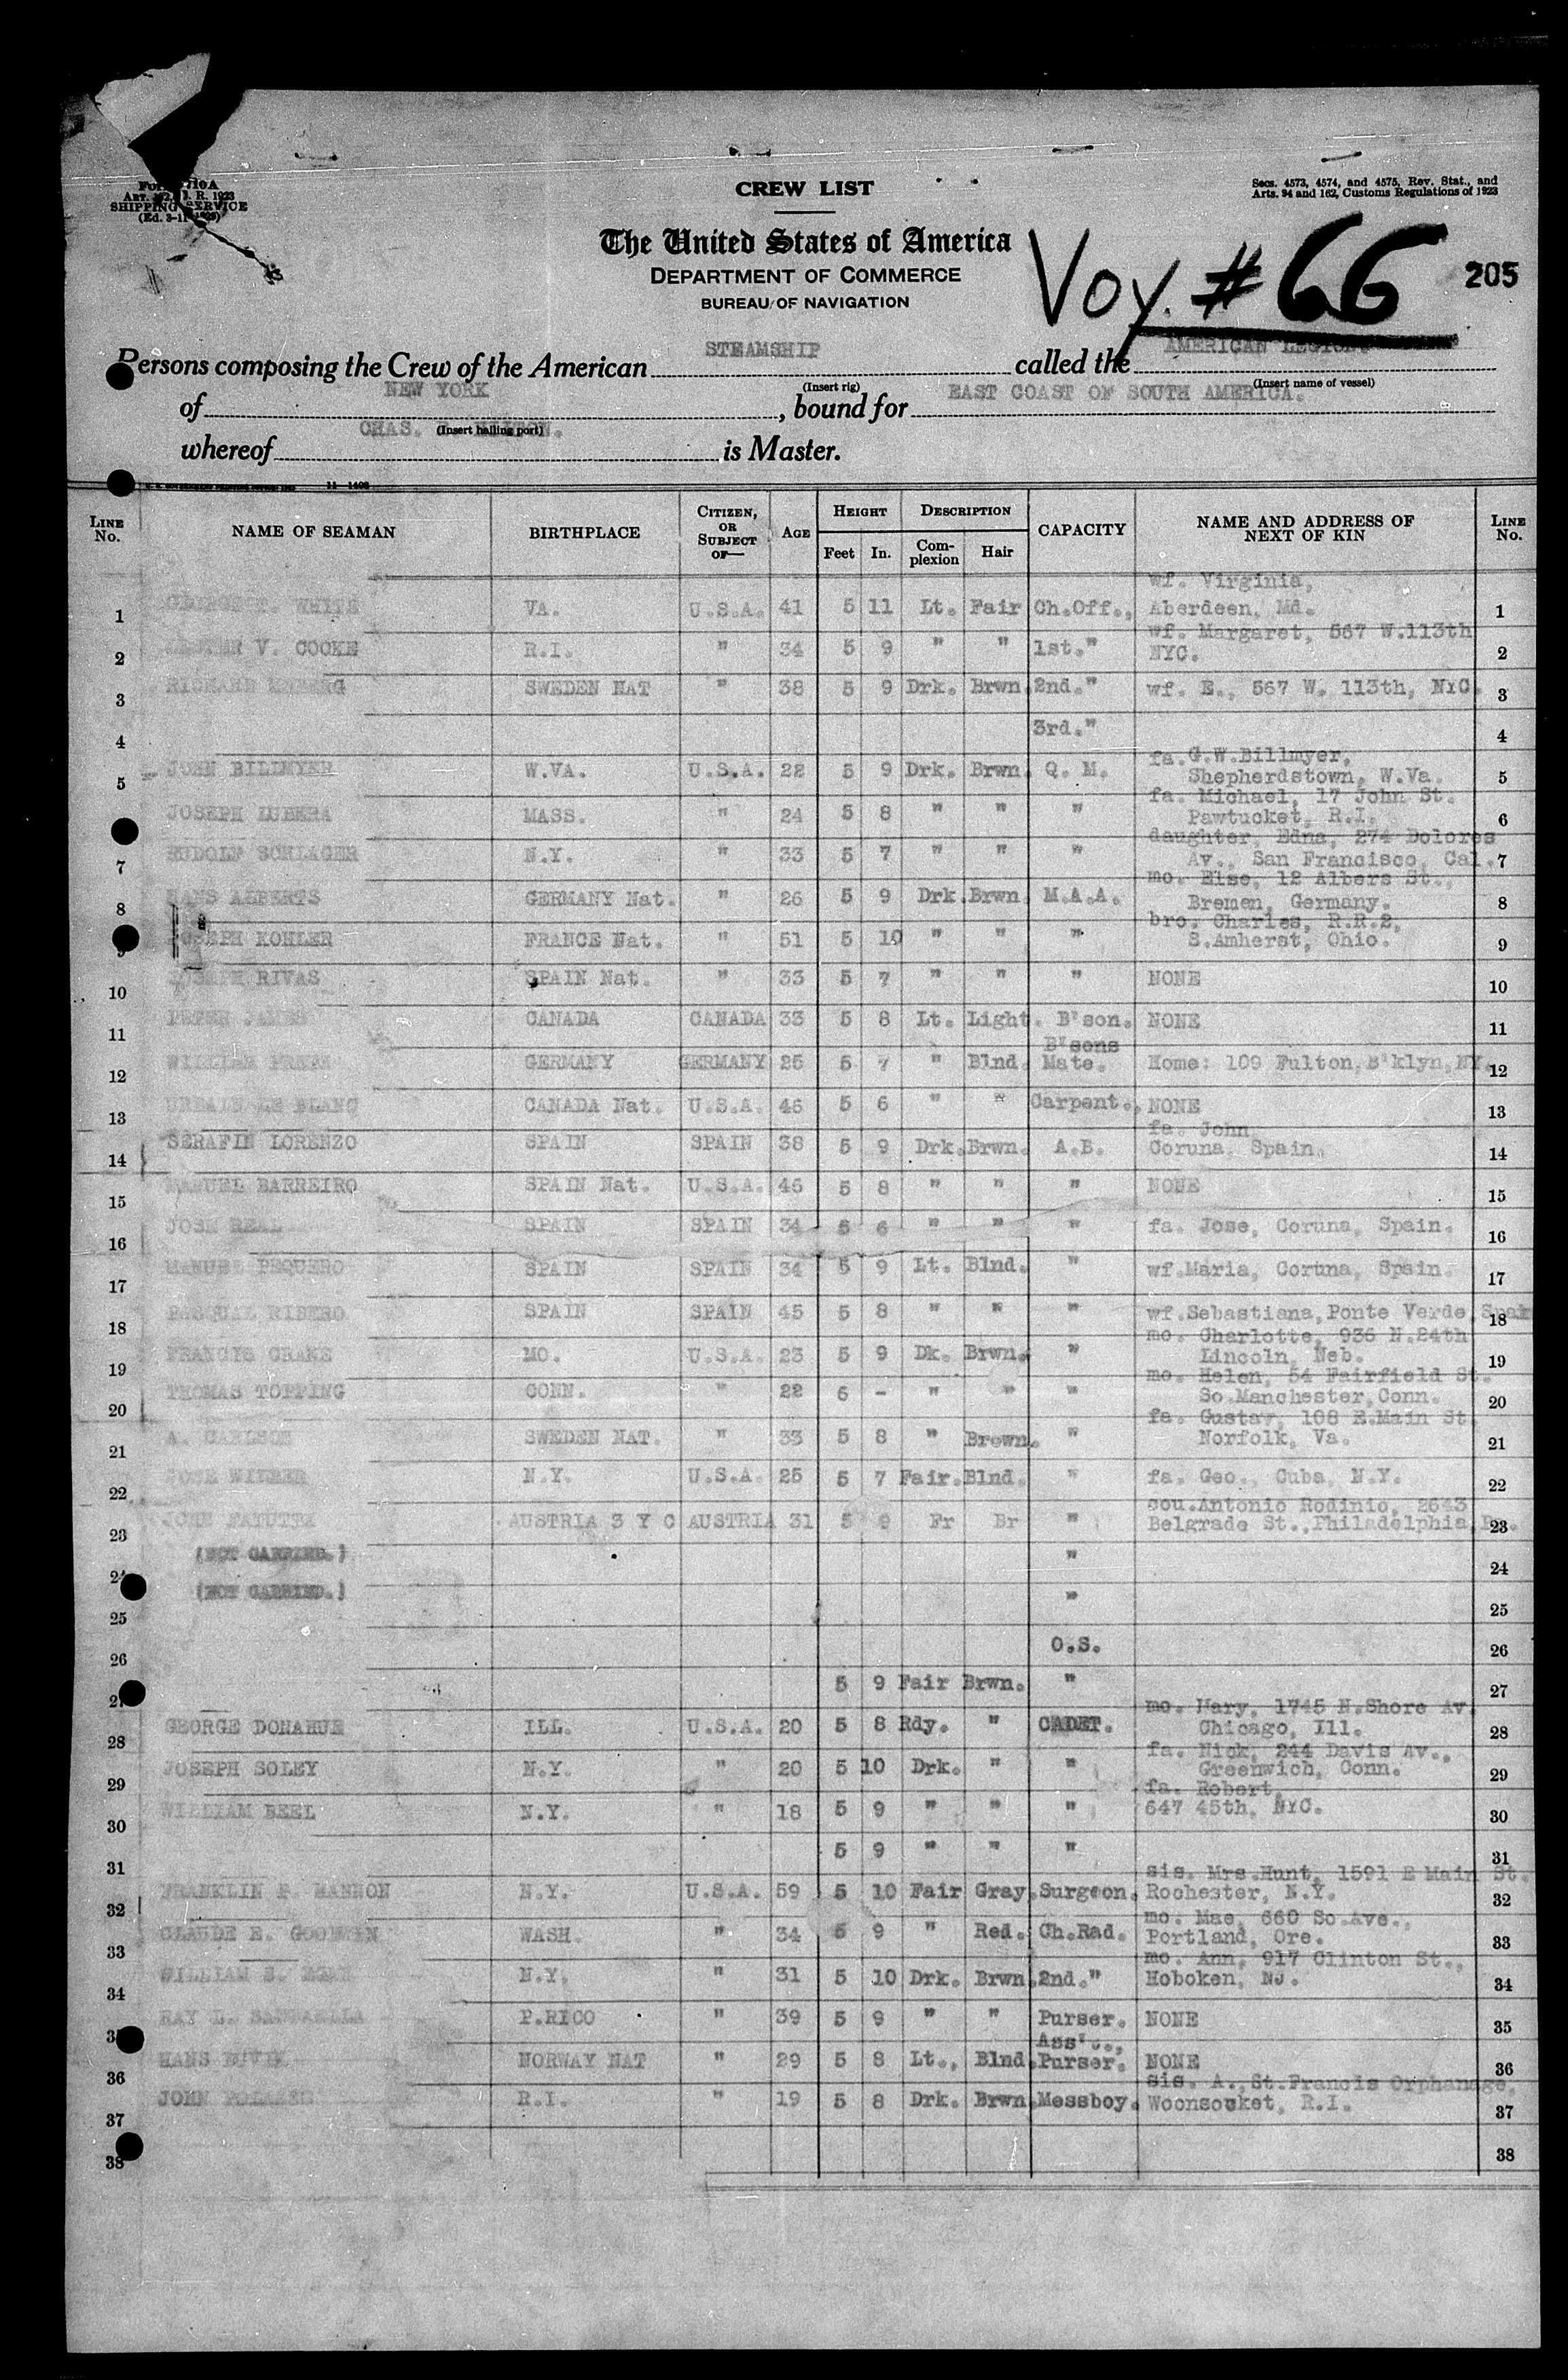 CREW LIST
SHIPPING SERVICE
Secs. 4573, 4574, and 4575, Rev. Stat., and
Arts. 94 and 162, Customs Regulations of 1923
The United States of America
DEPARTMENT OF COMMERCE
BUREAU OF NAVIGATION
Voy. # 66
205
Persons composing the Crew of the American STEAMSHIP called the AMERICAN LEGION.
(Insert rig) (Insert name of vessel)
of NEW YORK, bound for EAST COAST OF SOUTH AMERICA.
(Insert hailing port)
whereof CHAS. is Master.
LINE No. NAME OF SEAMAN BIRTHPLACE CITIZEN, OR SUBJECT OF— AGE HEIGHT Feet In. DESCRIPTION Complexion Hair CAPACITY NAME AND ADDRESS OF NEXT OF KIN LINE No.
1 WHITE VA. U.S.A. 41 5 11 Lt. Fair Ch.Off., wf. Virginia, Aberdeen, Md. 1
2 V. COOKE R.I. " 34 5 9 " " 1st." wf. Margaret, 567 W.113th NYC. 2
3 RICHARD SWEDEN NAT " 38 5 9 Drk. Brwn. 2nd." wf. E., 567 W. 113th, NYC. 3
4 3rd." 4
5 JOHN BILLMYER W.VA. U.S.A. 22 5 9 Drk. Brwn. Q. M. fa. G.W.Billmyer, Shepherdstown, W.Va. 5
JOSEPH LUBERA MASS. " 24 5 8 " " " fa. Michael, 17 John St. Pawtucket, R.I. 6
7 RUDOLF SCHLAGER N.Y. " 33 5 7 " " " daughter, Edna, 274 Dolores Av., San Francisco, Cal. 7
8 HANS ALBERTS GERMANY Nat. " 26 5 9 Drk. Brwn. M.A.A. mo. Else, 12 Albers St., Bremen, Germany. 8
9 JOSEPH KOHLER FRANCE Nat. " 51 5 10 " " " bro. Charles, R.R.2, S.Amherst, Ohio. 9
10 JOSEPH RIVAS SPAIN Nat. " 33 5 7 " " " NONE 10
11 PETER JAMES CANADA CANADA 33 5 8 Lt. Light. B'son. NONE 11
12 GERMANY GERMANY 25 5 7 " Blnd. B'sons Mate. Home: 109 Fulton, B'klyn, NY. 12
13 URBAIN LE BLANC CANADA Nat. U.S.A. 46 5 6 " " Carpent., NONE 13
14 SERAFIN LORENZO SPAIN SPAIN 38 5 9 Drk. Brwn. A.B. fa. John Coruna, Spain. 14
15 MANUEL BARREIRO SPAIN Nat. U.S.A. 46 5 8 " " " NONE 15
16 JOSE REAL SPAIN SPAIN 34 5 6 " " " fa. Jose, Coruna, Spain. 16
17 MANUEL PEQUERO SPAIN SPAIN 34 5 9 Lt. Blnd. " wf.Maria, Coruna, Spain. 17
18 PASQUAL RIBERO SPAIN SPAIN 45 5 8 " " " wf.Sebastiana, Ponte Verde, Spain 18
19 FRANCIS CRANE MO. U.S.A. 23 5 9 Dk. Brwn. " mo. Charlotte, 936 N.24th Lincoln, Neb. 19
20 THOMAS TOPPING CONN. " 22 6 - " " " mo. Helen, 54 Fairfield St. So.Manchester, Conn. 20
21 A. CARLSON SWEDEN NAT. " 33 5 8 " Brown. " fa. Gustav, 108 E.Main St. Norfolk, Va. 21
22 N.Y. U.S.A. 25 5 7 Fair. Blnd. " fa. Geo., Cuba, N.Y. 22
23 JOHN AUSTRIA 3 Y C AUSTRIA 31 5 9 Fr Br " cou.Antonio Rodinio, 2643 Belgrade St., Philadelphia, Pa. 23
24 (NOT CARRIED.) " 24
25 (NOT CARRIED.) " 25
26 O.S. 26
27 5 9 Fair Brwn. " 27
28 GEORGE DONAHUE ILL. U.S.A. 20 5 8 Rdy. " CADET. mo. Mary, 1745 N.Shore Av. Chicago, Ill. 28
29 JOSEPH SOLEY N.Y. " 20 5 10 Drk. " " fa. Nick, 244 Davis Av., Greenwich, Conn. 29
30 WILLIAM BEEL N.Y. " 18 5 9 " " " fa. Robert, 647 45th, NYC. 30
31 5 9 " " " 31
32 FRANKLIN N.Y. U.S.A. 59 5 10 Fair Gray. Surgeon. sis. Mrs.Hunt, 1591 E Main St. Rochester, N.Y. 32
33 CLAUDE E. WASH. " 34 5 9 " Red. Ch.Rad. mo. Mae, 660 So.Ave., Portland, Ore. 33
34 WILLIAM N.Y. " 31 5 10 Drk. Brwn. 2nd." mo. Ann, 917 Clinton St., Hoboken, NJ. 34
35 RAY L. P.RICO " 39 5 9 " " Purser. NONE 35
36 HANS NORWAY NAT " 29 5 8 Lt., Blnd. Ass't., Purser. NONE 36
37 JOHN R.I. " 19 5 8 Drk. Brwn. Messboy. sis. A., St.Francis Orphanage, Woonsocket, R.I. 37
38 38